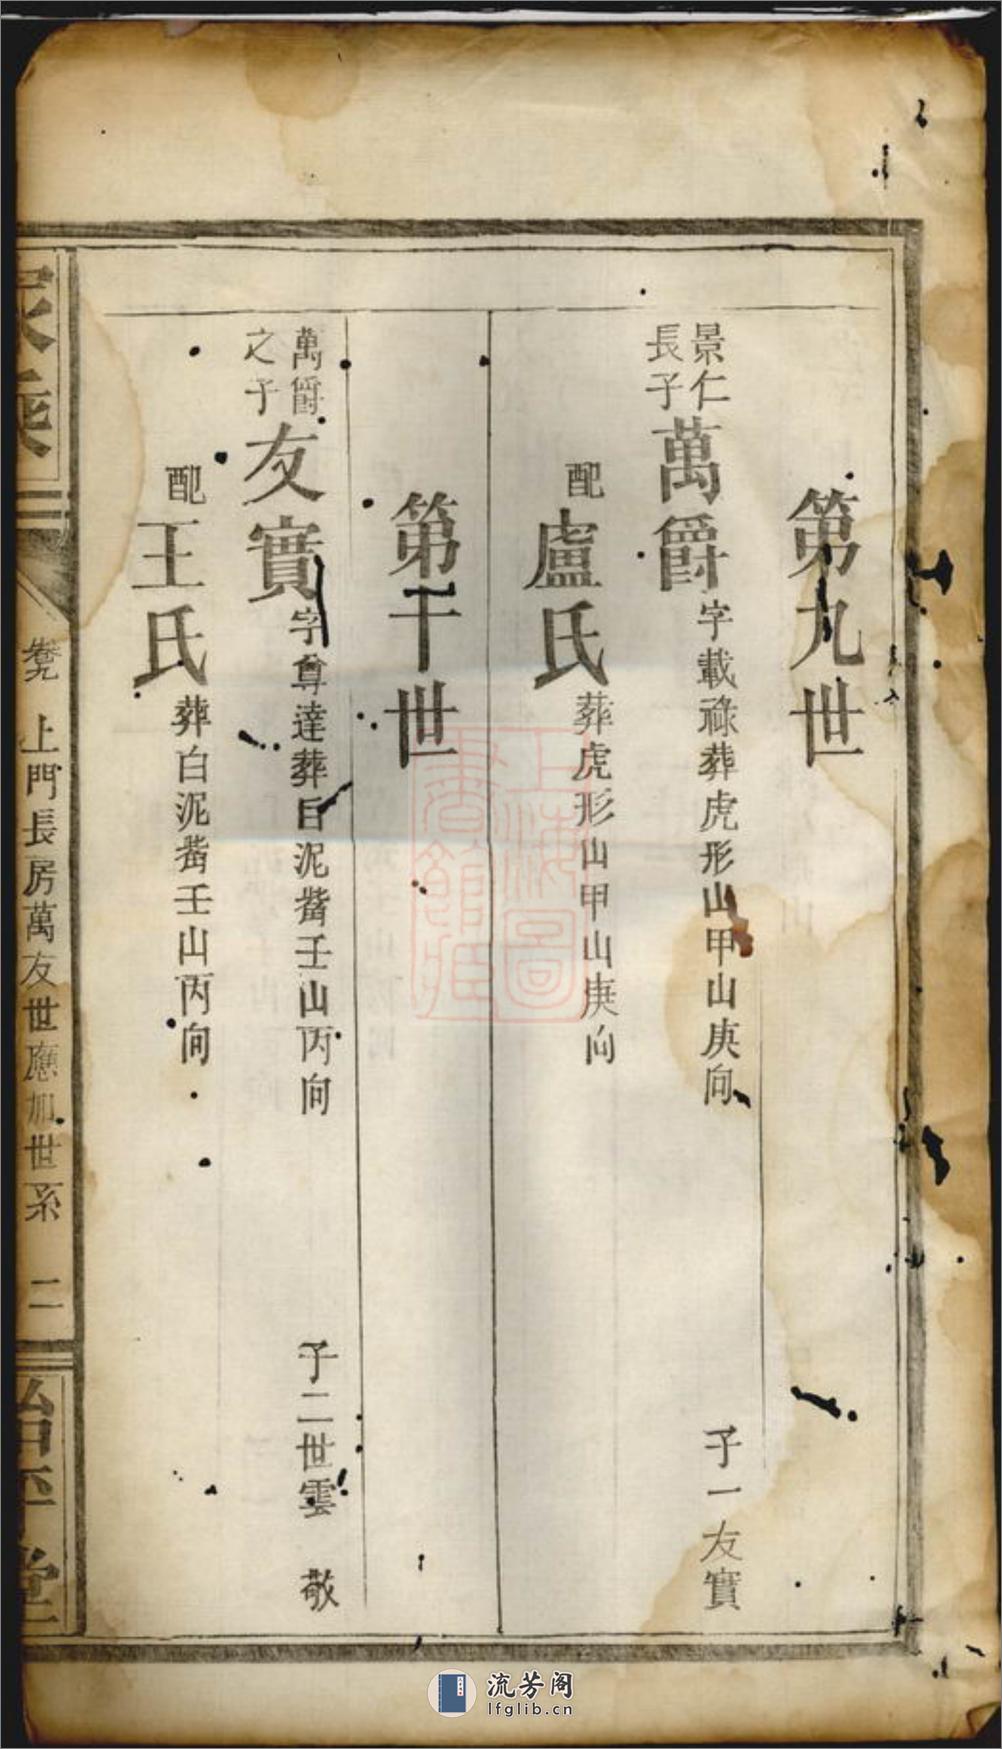 第九世
景仁
長子
萬爵字載祿葬虎形山甲山庚向 子一友實
配盧氏葬虎形山甲山庚向
第十世
萬爵
之子
友實字尊達葬白泥嘴壬山丙向 子二世雲 敬
配王氏葬白泥嘴壬山丙向
家乘 卷九 上門長房萬友世應加世系 二
上海圖書館藏
流芳阁
lfglib.cn